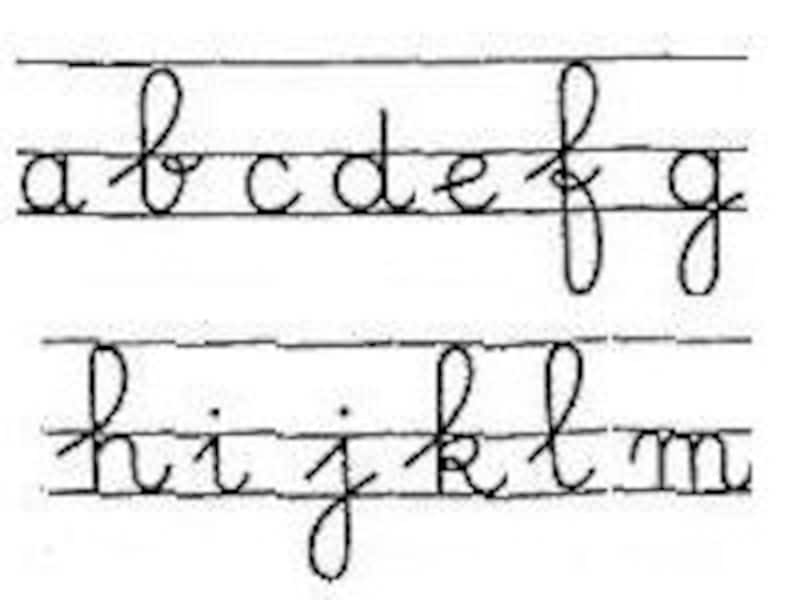 a b c d e f g
h i j k l m